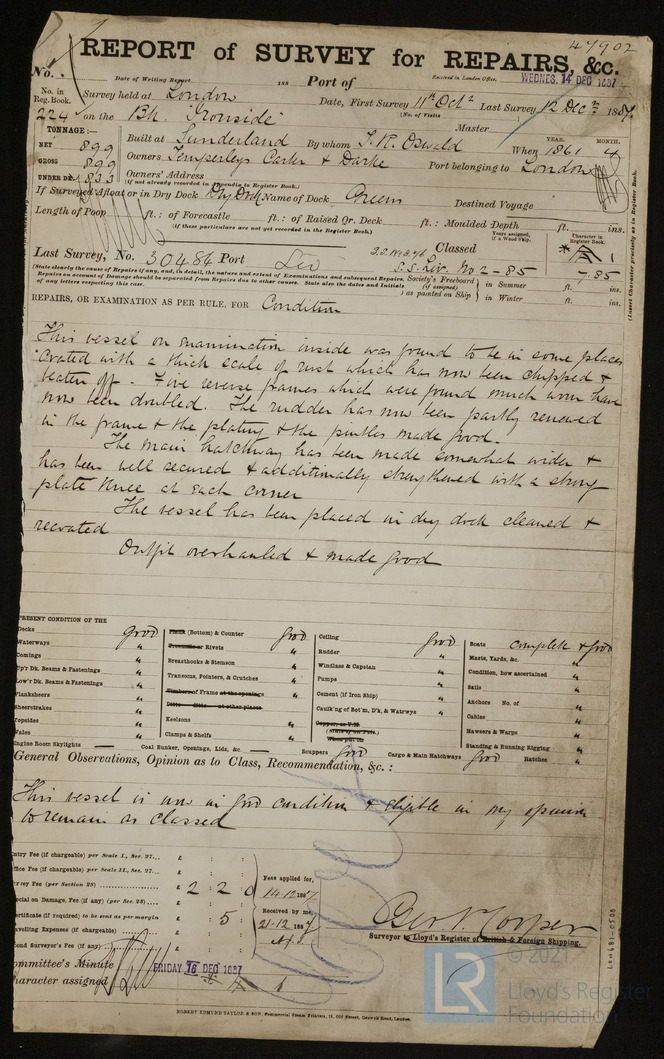 47902
REPORT of SURVEY for REPAIRS, &c.
No.
Date of Writing Report 188 Port of Received in London Office, WEDNES. 14 DEC 1887
No. in Reg. Book. Survey held at London Date, First Survey 11th Oct Last Survey 12 Dec 1887
(No. of Visits
224 on the Bk. "Ironside" Master
TONNAGE:—
NET 899
GROSS 899
UNDER DK 833
Built at Sunderland By whom T. R. Oswald When 1861 YEAR. MONTH. 4
Owners Temperleys Carter & Darke Port belonging to London
Owners' Address
(if not already recorded in Appendix to Register Book.)
If Surveyed Afloat or in Dry Dock Dry Dock Name of Dock Greens Destined Voyage
Length of Poop ft.: of Forecastle ft.: of Raised Qr. Deck ft.: Moulded Depth ft. ins.
(If these particulars are not yet recorded in the Register Book.)
Years assigned, if a Wood Ship. Character in Register Book.
Last Survey, No. 30486 Port Liv Classed A 1
S.S. Liv. No 2-85 7.85
(State clearly the cause of Repairs if any, and, in detail, the nature and extent of Examinations and subsequent Repairs.
Repairs on account of Damage should be separated from Repairs due to other causes. State also the dates and Initials
of any letters respecting this case.
Society's Freeboard (if assigned) as painted on Ship in Summer ft. ins.
in Winter ft. ins.
(Insert Character precisely as in Register Book.
REPAIRS, OR EXAMINATION AS PER RULE, FOR Condition
This vessel on examination inside was found to be in some places
coated with a thick scale of rust which has now been chipped &
beaten off. Five reverse frames which were found much worn have
now been doubled. The rudder has now been partly renewed
in the frame & the plating & the pintles made good.
The main hatchway has been made somewhat wider &
has been well secured & additionally strengthened with a strong
plate knee at each corner
The vessel has been placed in dry dock cleaned &
recoated
Outfit overhauled & made good
PRESENT CONDITION OF THE
Decks good
Waterways "
Comings "
Up'r Dk. Beams & Fastenings "
Low'r Dk. Beams & Fastenings "
Planksheers "
Sheerstrakes "
Topsides "
Wales "
Engine Room Skylights —
Plank (Bottom) & Counter good
Treenails or Rivets "
Breasthooks & Stemson "
Transoms, Pointers, & Crutches "
Timbers of Frame at the openings "
Ditto Ditto at other places "
Keelsons "
Clamps & Shelfs "
Coal Bunker, Openings, Lids, &c. —
Ceiling good
Rudder "
Windlass & Capstan "
Pumps "
Cement (if Iron Ship) "
Caulk'ng of Bot'm, D'k, & Watrwys "
Copper, or Y.M.
(State if on Felt.)
When put on
Scuppers good
Boats complete & good
Masts, Yards, &c. "
Condition, how ascertained "
Sails "
Anchors No. of "
Cables "
Hawsers & Warps "
Standing & Running Rigging "
Cargo & Main Hatchways good Hatches "
General Observations, Opinion as to Class, Recommendation, &c.:
This vessel is now in good condition & eligible in my opinion
to remain as classed
Entry Fee (if chargeable) per Scale I., Sec. 27... £ : :
Office Fee (if chargeable) per Scale II., Sec. 27... £ : :
Survey Fee (per Section 28) £ 2 : 2 : 0
Special on Damage, Fee (if any) (per Sec. 28) £ : :
Certificate (if required) to be sent as per margin £ : 5 :
Travelling Expenses (if chargeable) £ : :
Second Surveyor's Fee (if any) £ : :
Fees applied for,
14.12.1887
Received by me,
21.12.1887
Geo. N. Cooper
Surveyor to Lloyd's Register of British & Foreign Shipping.
Committee's Minute FRIDAY 16 DEC 1887
Character assigned 1
ROBERT EDMUND TAYLOR & SON, Commercial Steam Printers, 19, Old Street, Goswell Road, London.
LRF-681-0508
© 2021
LR Lloyd's Register
Foundation